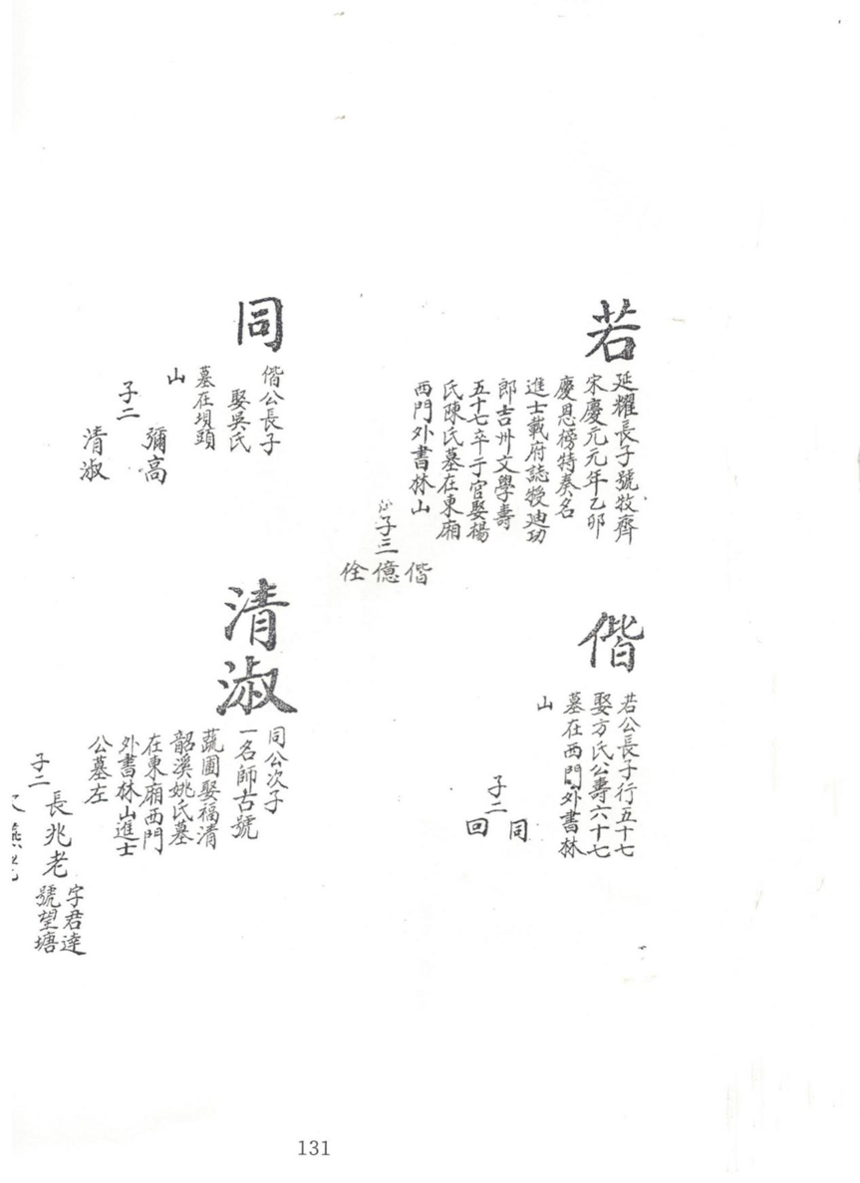 若
延耀長子號牧齊
宋慶元元年乙卯
慶恩榜特奏名
進士載府誌授迪功
郎吉州文學壽
五十七卒于官娶楊
氏陳氏墓在東廂
西門外書林山
子三
偕
億
佺
偕
若公長子行五十七
娶方氏公壽六十七
墓在西門外書林
山
子二
同
回
同
偕公長子
娶吳氏
墓在垻頭
山
子二
彌高
清淑
清淑
同公次子
一名師古號
蔬圃娶福清
韶溪姚氏墓
在東廂西門
外書林山進士
公墓左
子二
長兆老
字君逹
號望塘
131